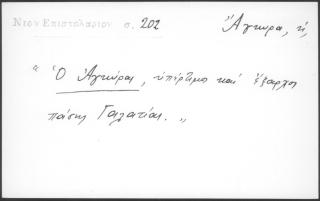 Νέον Ἐπιστολάριον σ. 202
Ἄγκυρα, ἡ,
“ Ὁ Ἀγκύρας, ὑπέρτιμος καὶ ἔξαρχος
πάσης Γαλατίας. „